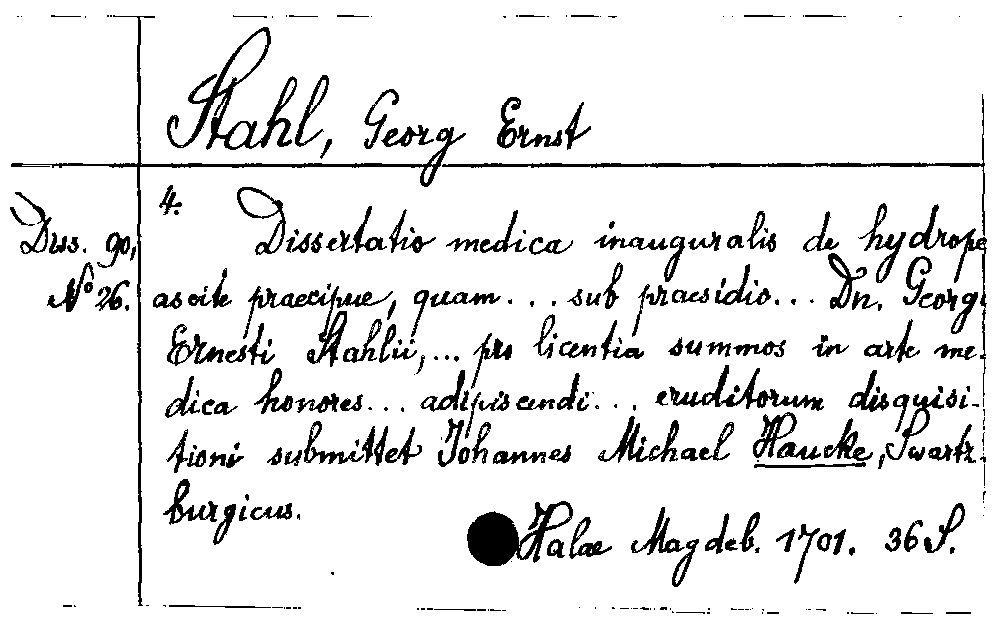 Stahl, Georg Ernst
4.
Diss. 90,
No 26.
Dissertatio medica inauguralis de hydrope
ascite praecipue, quam... sub praesidio... Dn. Georgi
Ernesti Stahlii,... pro licentia summos in arte me-
dica honores... adipiscendi... eruditorum disquisi-
tioni submittet Johannes Michael Haucke, Swartz-
burgicus.
Halae Magdeb. 1701. 36 S.